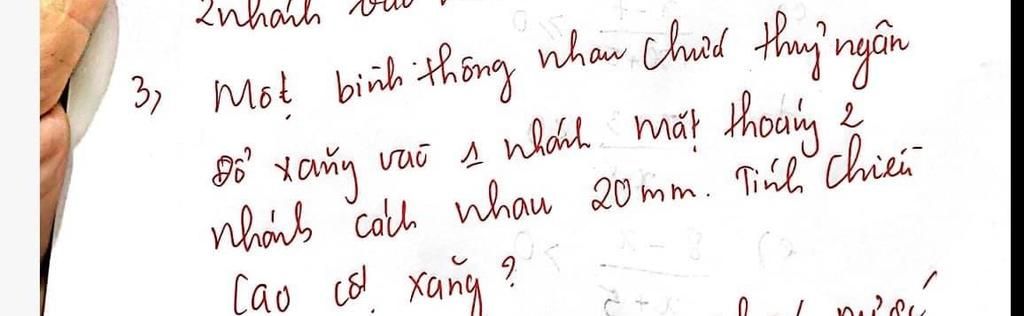 2 nhánh
3, Một bình thông nhau chứa thuỷ ngân
Đổ xăng vào 1 nhánh mặt thoáng 2
nhánh cách nhau 20mm. Tính chiều
cao cột xăng?